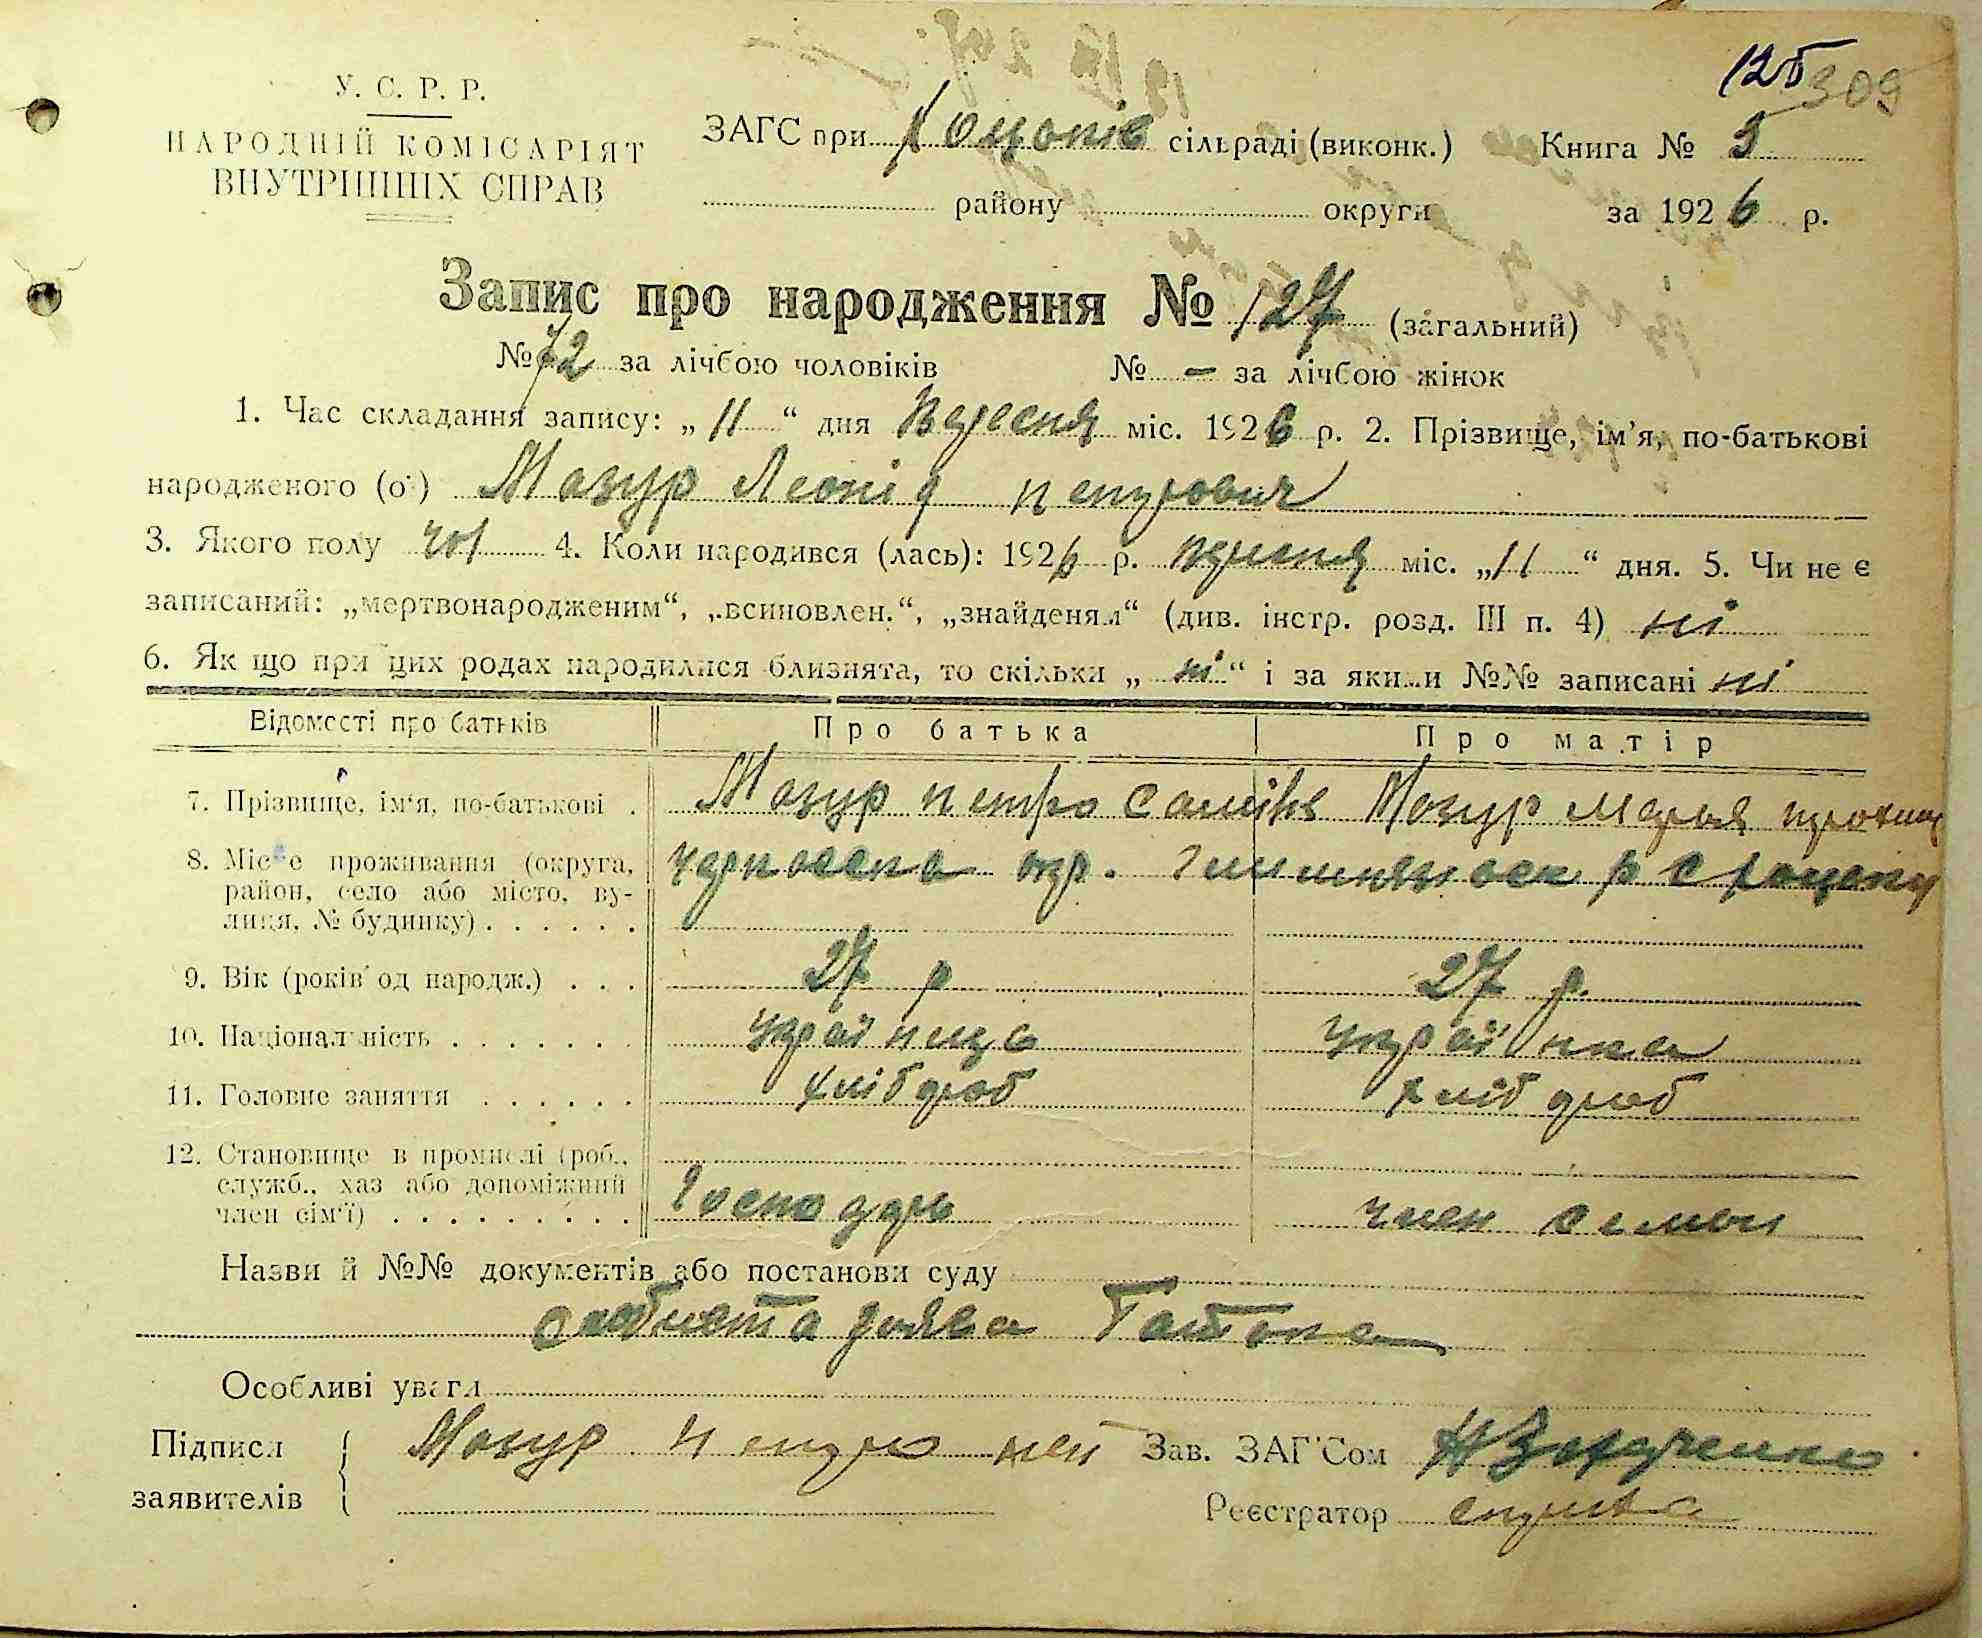 125 309
У. С. Р. Р.
НАРОДНІЙ КОМІСАРІЯТ
ВНУТРІШНІХ СПРАВ
ЗАГС при Хоцьків сільраді (виконк.) Книга № 5
району округи за 1926 р.
Запис про народження № 127 (загальний)
№ 72 за лічбою чоловіків № — за лічбою жінок
1. Час складання запису: „11“ дня Вересня міс. 1926 р. 2. Прізвище, ім’я, по-батькові
народженого (ої) Мазур Леонід петрович
3. Якого полу чол 4. Коли народився (лась): 1926 р. вересня міс. „11“ дня. 5. Чи не є
записаний: „мертвонародженим“, „всиновлен.“, „знайденям“ (див. інстр. розд. III п. 4) ні
6. Як що при цих родах народилися близнята, то скільки „ні“ і за якими №№ записані ні
Відомості про батьків Про батька Про матір
7. Прізвище, ім’я, по-батькові . Мазур петро Мазур Марья
8. Місце проживання (округа,
район, село або місто, ву-
лиця, № будинку) . . . . . . окр. р с
9. Вік (років од народж.) . . . 27 р 27 р.
10. Національність . . . . . . . українць українка
11. Головне заняття . . . . . . хлібороб хлібороб
12. Становище в промислі (роб.,
служб., хаз або допоміжний
член сім’ї) . . . . . . . . . Господарь член семьи
Назви й №№ документів або постанови суду
особиста заява батька
Особливі уваги
Підписи Мазур Петро Зав. ЗАГС’ом
заявителів Реєстратор